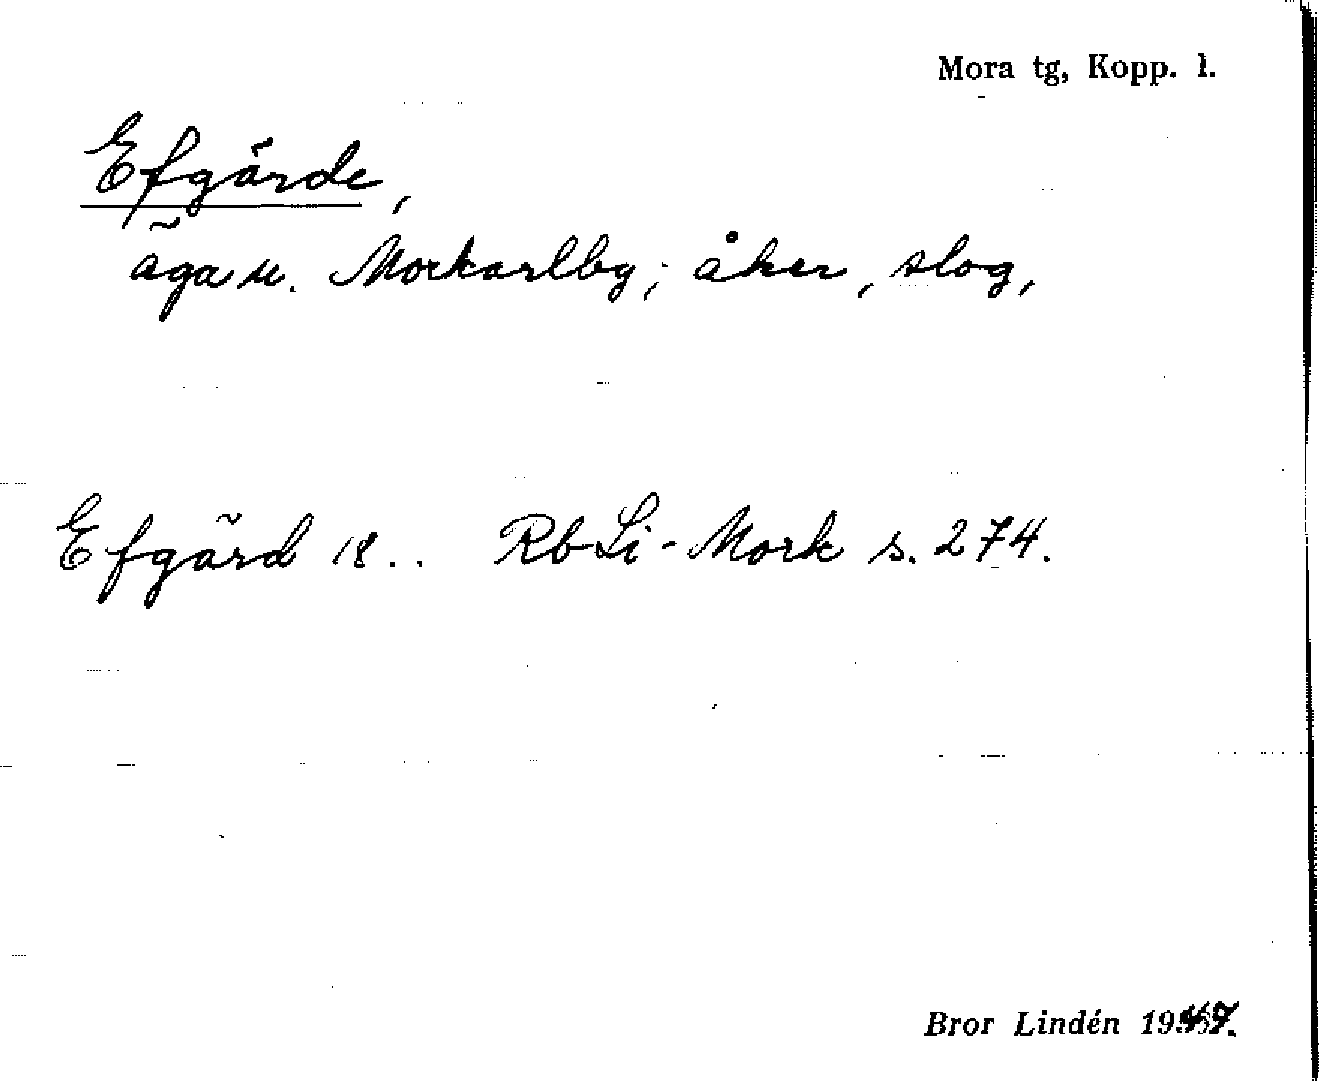 Mora tg, Kopp. l.
Efgärde,
äga u. Morkarlby; åker, slog,
Efgärd 18.. Rb Li-Mork s. 274.
Bror Lindén 1947.